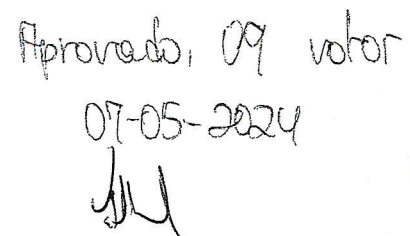 Aprovado, 09 votos
07-05-2024